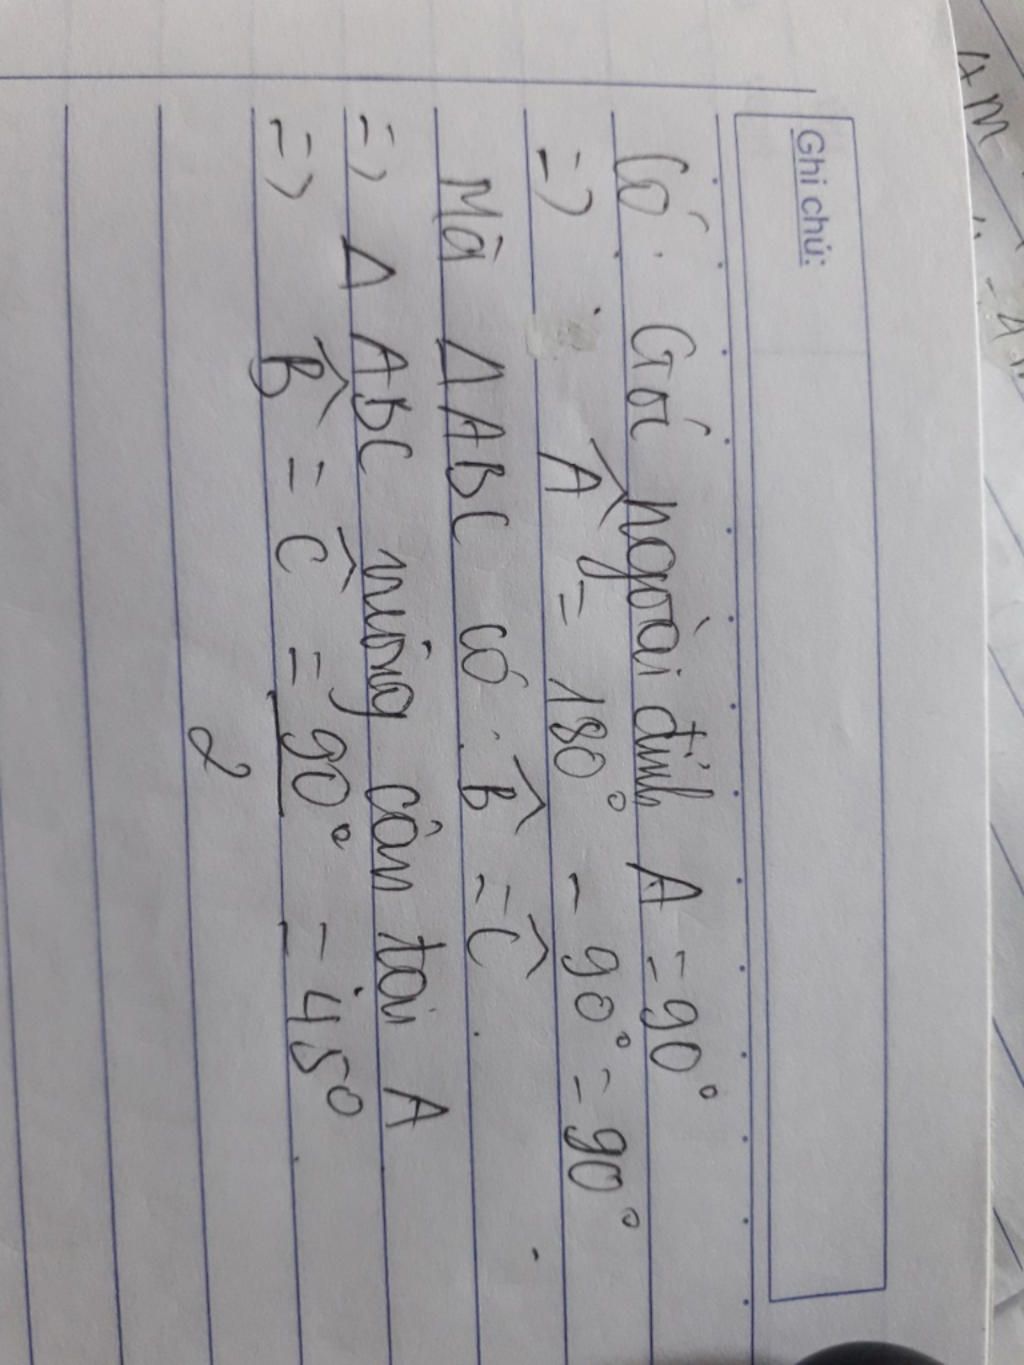 Ghi chú:
Có: Góc ngoài đỉnh A = 90°
=> Â = 180° - 90° = 90°
Mà Δ ABC có: B̂ = Ĉ.
=> Δ ABC vuông cân tại A
=> B̂ = Ĉ = 90° = 45°
2
AM